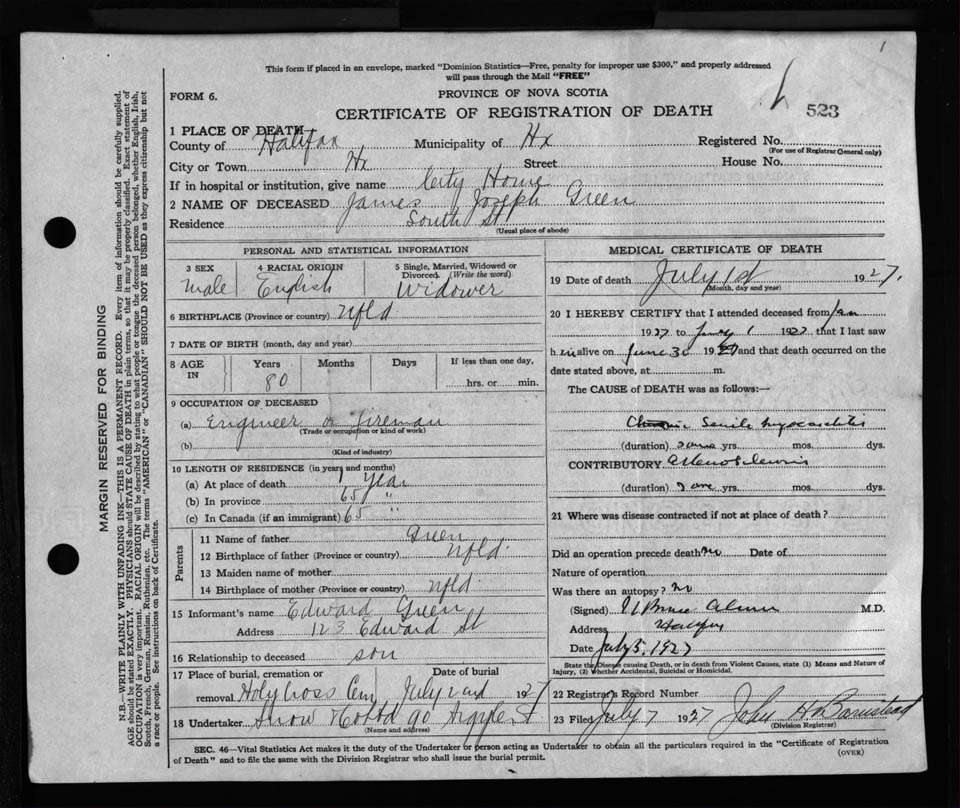 This form if placed in an envelope, marked "Dominion Statistics—Free, penalty for improper use $300," and properly addressed
will pass through the Mail "FREE"
FORM 6.
PROVINCE OF NOVA SCOTIA
CERTIFICATE OF REGISTRATION OF DEATH
523
1 PLACE OF DEATH—
County of Halifax Municipality of Hx Registered No.
(For use of Registrar General only)
City or Town Hx Street House No.
If in hospital or institution, give name City Home
2 NAME OF DECEASED James Joseph Green
Residence South St
(Usual place of abode)
PERSONAL AND STATISTICAL INFORMATION
3 SEX 4 RACIAL ORIGIN 5 Single, Married, Widowed or
Divorced. (Write the word)
Male English Widower
6 BIRTHPLACE (Province or country) Nfld
7 DATE OF BIRTH (month, day and year)
8 AGE IN Years Months Days If less than one day,
80 hrs. or min.
9 OCCUPATION OF DECEASED
(a) Engineer or Fireman
(Trade or occupation or kind of work)
(b)
(Kind of industry)
10 LENGTH OF RESIDENCE (in years and months)
(a) At place of death 1 year
(b) In province 65 "
(c) In Canada (if an immigrant) 65 "
Parents
11 Name of father Green
12 Birthplace of father (Province or country) Nfld.
13 Maiden name of mother
14 Birthplace of mother (Province or country) Nfld.
15 Informant's name Edward Green
Address 123 Edward St
16 Relationship to deceased son
17 Place of burial, cremation or Date of burial
removal Holy Cross Cem July 2nd 1927
18 Undertaker Snow 90 Argyle St
(Name and address)
MEDICAL CERTIFICATE OF DEATH
19 Date of death July 1st 1927.
(Month, day and year)
20 I HEREBY CERTIFY that I attended deceased from Jan
1927 to July 1 1927 that I last saw
h im alive on June 30 1927 and that death occurred on the
date stated above, at m.
The CAUSE of DEATH was as follows:—
Chronic Senile Myocarditis
(duration) yrs. mos. dys.
CONTRIBUTORY Arteriosclerosis
(duration) yrs. mos. dys.
21 Where was disease contracted if not at place of death?
Did an operation precede death no Date of
Nature of operation
Was there an autopsy? no
(Signed) M.D.
Address Halifax
Date July 5, 1927
State the Disease causing Death, or in death from Violent Causes, state (1) Means and Nature of
Injury, (2) Whether Accidental, Suicidal or Homicidal.
22 Registrar's Record Number
23 Filed July 7 1927 John H. Barnstead
(Division Registrar)
SEC. 46—Vital Statistics Act makes it the duty of the Undertaker or person acting as Undertaker to obtain all the particulars required in the "Certificate of Registration
of Death" and to file the same with the Division Registrar who shall issue the burial permit.
(OVER)
MARGIN RESERVED FOR BINDING
N.B.—WRITE PLAINLY WITH UNFADING INK—THIS IS A PERMANENT RECORD. Every item of information should be carefully supplied.
AGE should be stated EXACTLY. PHYSICIANS should STATE CAUSE OF DEATH in plain terms, so that it may be properly classified. Exact statement of
OCCUPATION is very important. RACIAL ORIGIN will be described by stating to what people or tongue the deceased person belonged, whether English, Irish,
Scotch, French, German, Russian, Ruthenian, etc. The terms "AMERICAN" or "CANADIAN" SHOULD NOT BE USED as they express citizenship but not
a race or people. See instructions on back of Certificate.